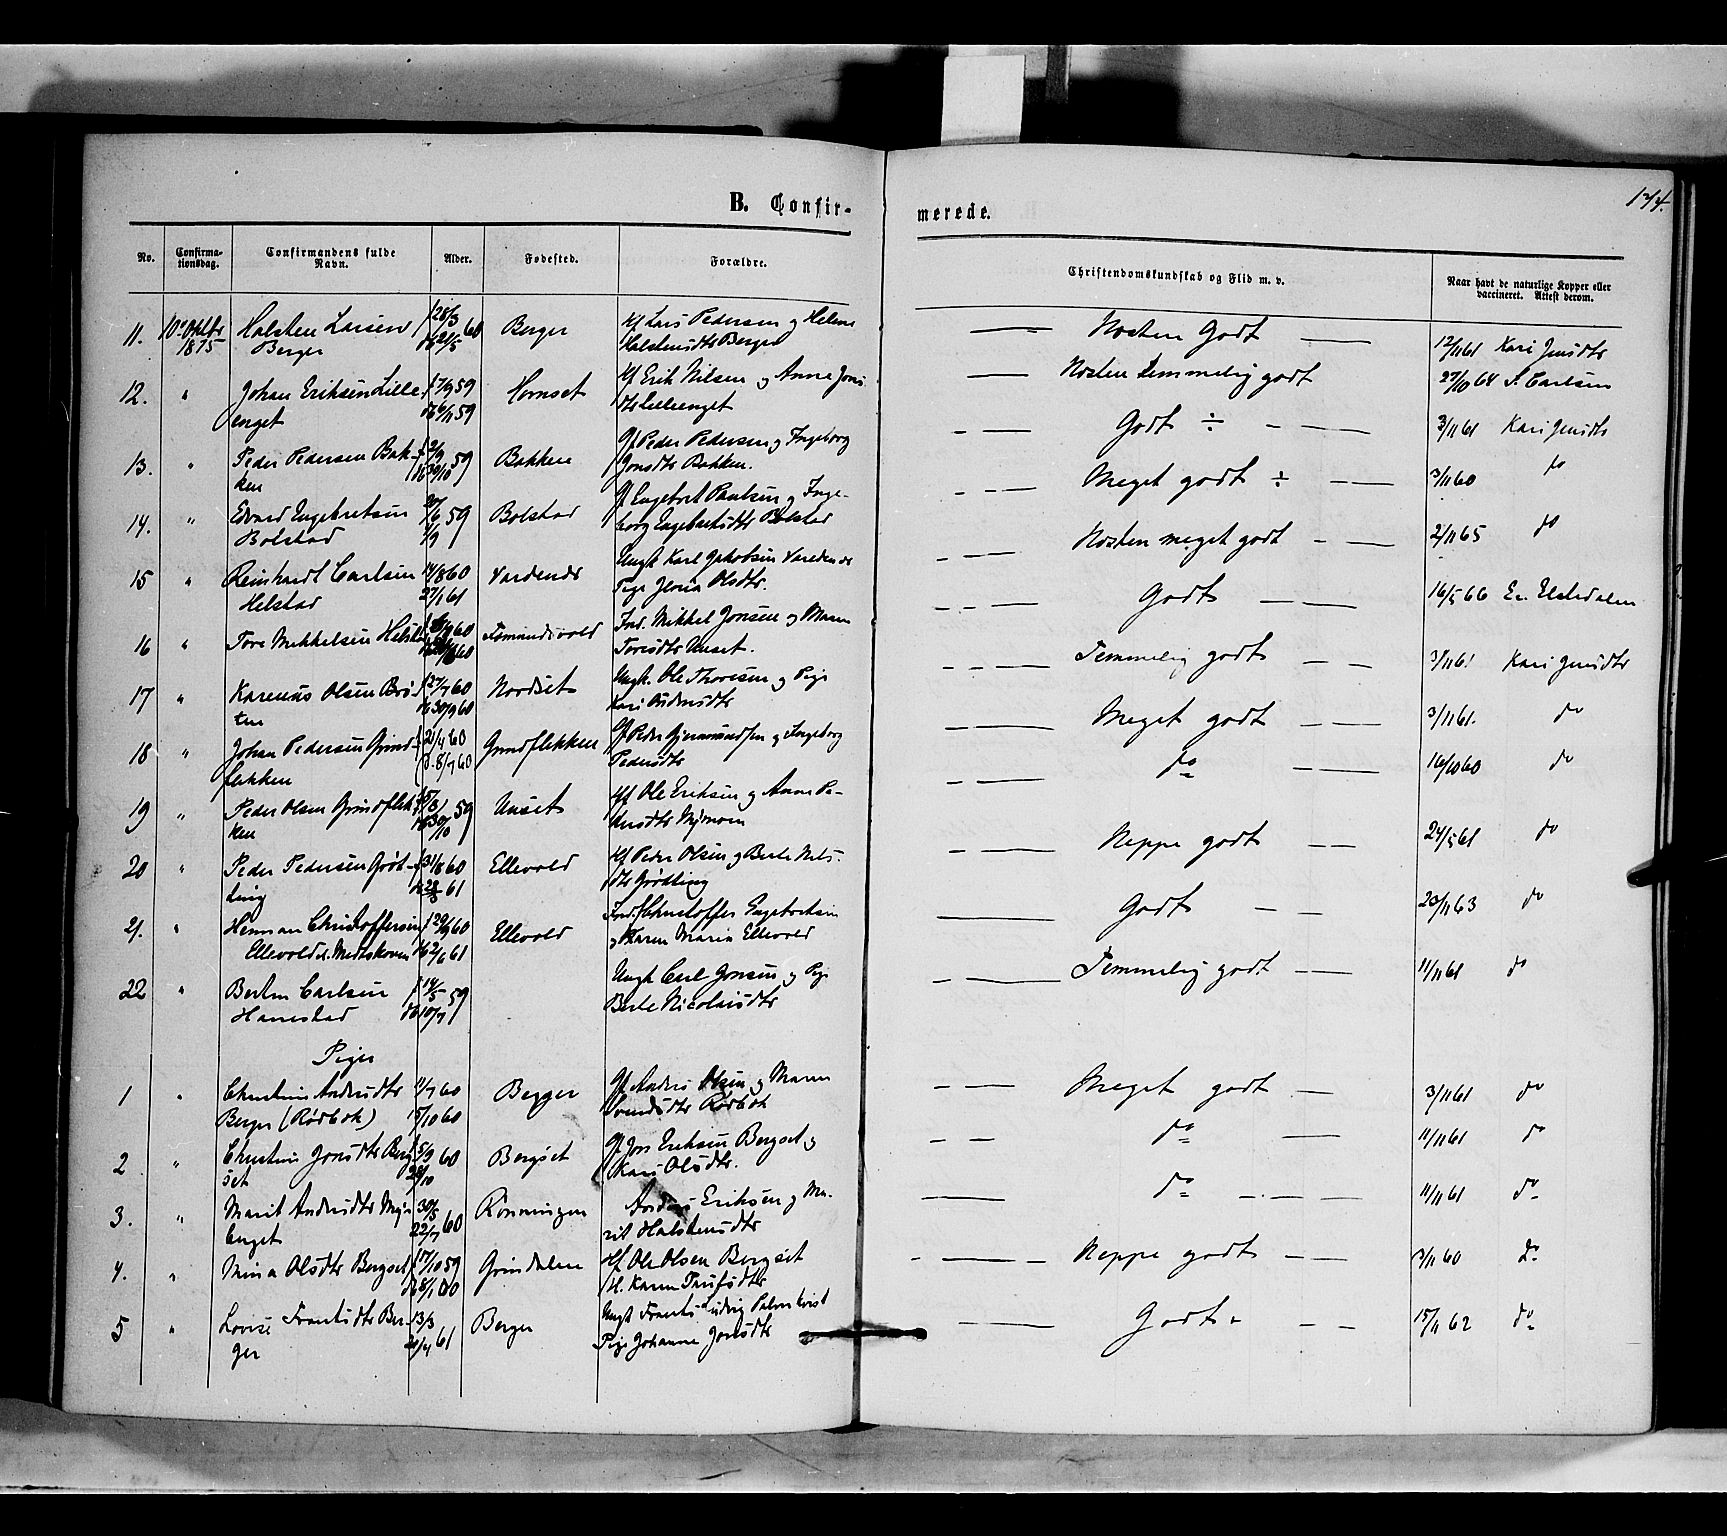 B. Confir-
merede.
174.
No.
Confirma-
tionsdag.
Confirmandens fulde
Navn.
Alder.
Fødested.
Forældre.
Christendomskundskab og Flid m. v.
Naar havt de naturlige Kopper eller
vaccineret. Attest derom.
11. 1875 Halsten Larsen 28/3 60 Berger Lars Pedersen og Helene Næsten Godt 12/11 61 Kari Jensdtr
Berger Halstensdtr Berger
12. " Johan Eriksen Lille- 59 Hornset Erik Nilsen og Anne Jons- Næsten temmelig godt 64 S. Carlsen
enget 59 dtr Lilleenget
13. " Peder Pedersen Bak- 59 Bakken Peder Pedersen og Ingeborg Godt ÷ 3/11 61 Kari Jensdtr
ken Jonsdtr Bakken.
14. " Edvard Engebretsen 59 Bolstad Engebret Paulsen og Inge- Meget godt ÷ 3/11 60 do
Bolstad borg Engebretsdtr Bolstad
15 " Reinhardt Carlsen 14/8 60 Ungk Karl Jakobsen Næsten meget godt 2/11 65 do
Helstad 27/1 61 Pige Olsdtr.
16 " Tore Mikkelsen 60 Mikkel Jonsen og Maren Godt 16/5 66
60 Toresdtr Unset.
17 " Karenus Olsen Brø- 27/7 60 Nordset Ungk. Ole Thoresen og Pige Temmelig godt 3/11 61 Kari Jensdtr
ten 30/9 60 Kari
18 " Johan Pedersen Grind- 60 Grindflekken Peder og Ingeborg Meget godt 3/11 61. do
flekken 8/7 60 Pedersdtr
19 " Peder Olsen Grindflek- 59 Unset Ole Eriksen og Anne Pe- do 16/10 60 do
ken dersdtr
20 " Peder Pedersen Grøt- 60 Ellevold Peder Olsen og Berte Nils- Neppe godt 24/5 61 do
ting 61 dtr Grøtting
21. " Herman Christoffersen 29/9 60 Ellevold Christoffer Engebretsen Godt 20/11 63 do
Ellevold 61 og Karen Maria Ellevold
22 " Carlsen 14/5 59 Ungk Carl Jonsen og Pige Temmelig godt 11/11 61 do
Hanestad 10/7 Berte Nicolaisdtr
Piger
1 " Christine Andersdtr 11/7 60 Berger Anders Olsen og Maren Meget godt 3/11 61 do
Berger (Rødbæk) 5/10 60 Rødbæk
2 " Christine Jonsdtr Berg- 5/9 60 Bergset Jon Eriksen Bergset og do 11/11 61 do
set Kari Olsdtr.
3. " Marit Andersdtr 30/5 60 Rønningen Anders Eriksen og Ma- do 11/11 61 do
enget 22/7 rit Halstensdtr
4. " Mina Olsdtr Bergset 17/10 59 Grindalen Ole Olsen Bergset Neppe godt 3/11 60 do
8/1 60 H. Karen
5 " Lovise Frantsdtr Ber- 13/3 61 Berger Ungk Frants Ludvig Palmkvist Godt 15/11 62 do
ger Pige Johanne Jonsdtr